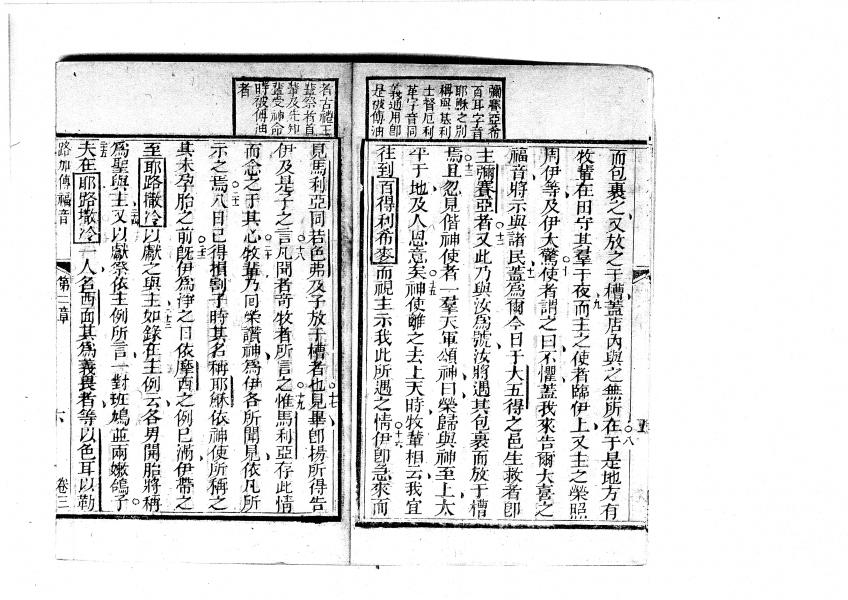 而包裹之又放之于槽蓋店內與之無所在于是地方有
八
牧輩在田守其羣于夜而主之使者臨伊上又主之榮照
九
周伊等及伊大驚使者謂之曰不懼蓋我來告爾大喜之
十
福音將示與諸民蓋爲爾今日于大五得之邑生救者即
十一
主彌賽亞者又此乃與汝爲號汝將遇其包裹而放于槽
十二
焉且忽見偕神使者一羣天軍頌神曰榮歸與神至上太
十三
平于地及人恩意矣神使離之去上天時牧輩相云我宜
十五
往到百得利希麥而視主示我此所遇之情伊即急來而
十六
彌賽亞希
百耳字音
耶穌之別
稱與基利
士督厄利
革字音同
義通用即
是被傅油
者古禮王
輩祭者首
輩及先知
輩受神命
時被傅油
者
見馬利亞同若色弗及子放于槽者也見畢即揚所得告
十七
伊及是子之言凡聞者奇牧者所言之惟馬利亞存此情
十八
十九
而念之于其心牧輩乃回榮讚神爲伊各所聞見依凡所
二十
示之焉八日已得損割子時其名稱耶穌依神使所稱之
其未孕胎之前既伊爲淨之日依摩西之例已滿伊帶之
至耶路撒冷以獻之與主如錄在主例云各男開胎將稱
爲聖與主又以獻祭依主例所言一對班鳩並兩嫩鴿子
夫在耶路撒冷一人名西面其爲義畏者等以色耳以勒
路加傳福音
第二章
六
卷三